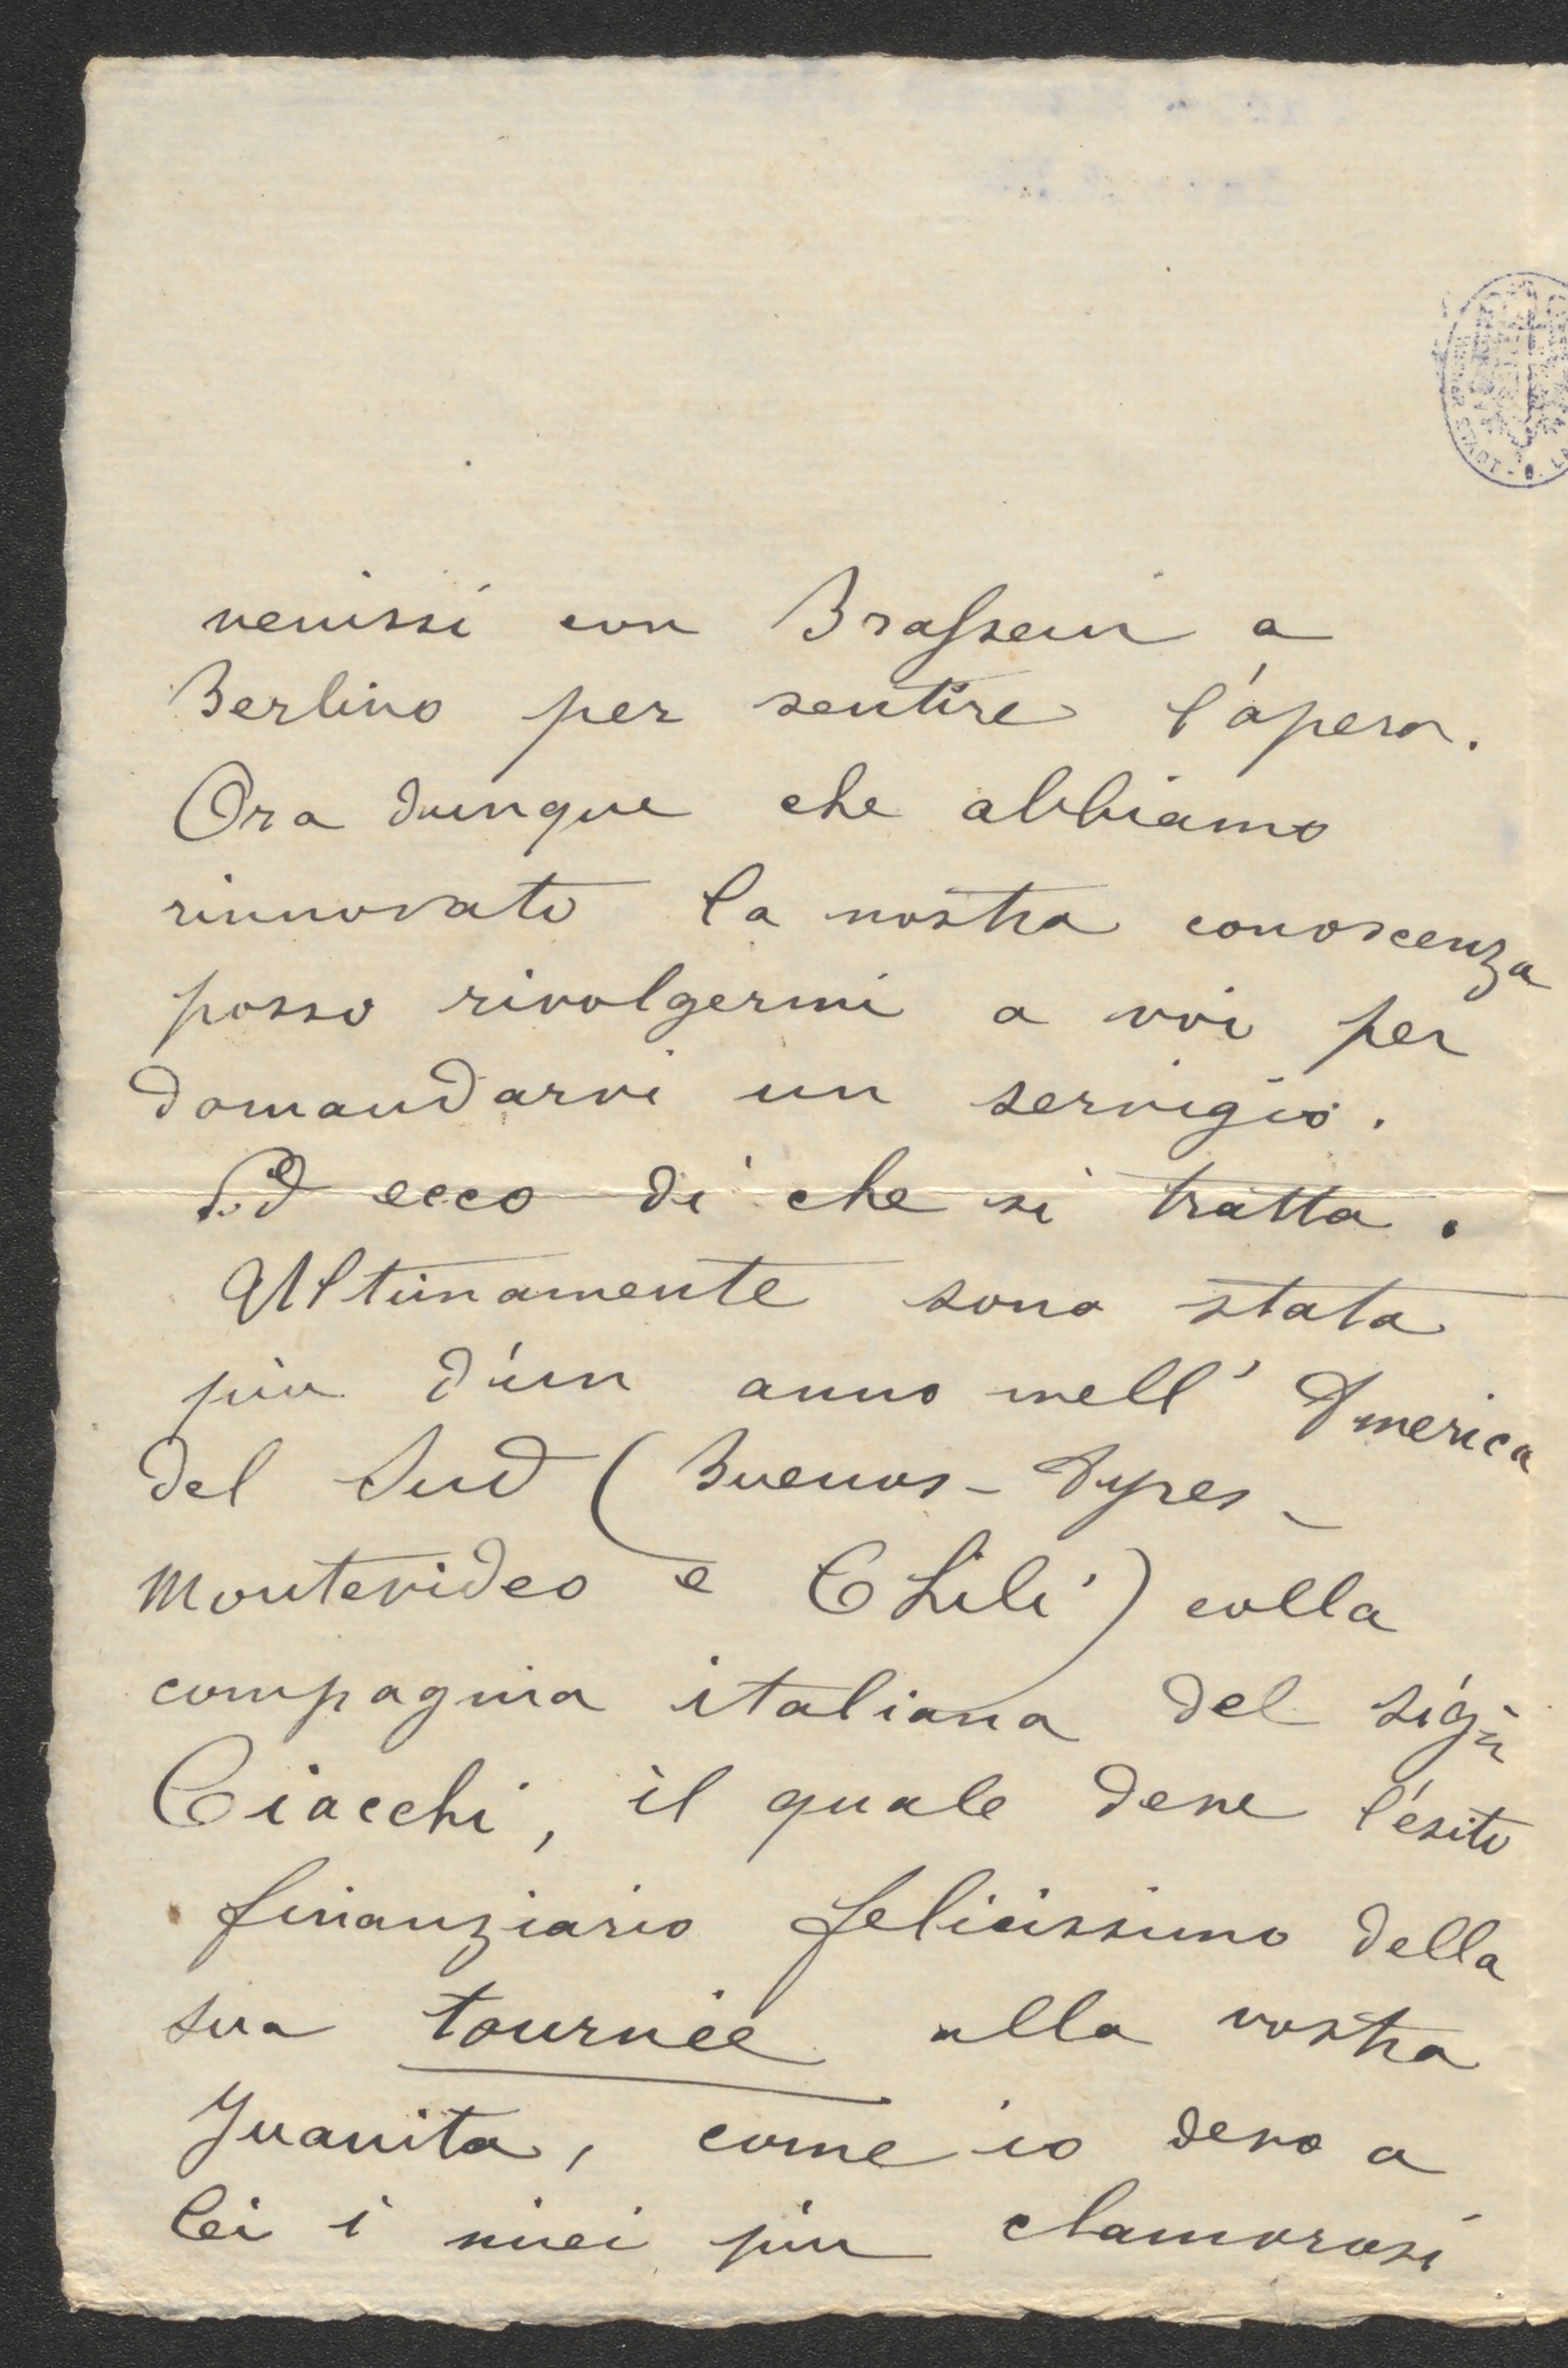 venissi con Brassein a
Berlino per sentire l'opera.
Ora dunque che abbiamo
rinnovato la nostra conoscenza
posso rivolgermi a voi per
domandarvi un servigio.
Ed ecco di che si tratta.
Ultimamente sono stata
più d'un anno nell' America
del Sud (Buenos-Ayres-
Montevideo e Chilì) colla
compagnia italiana del sigr
Ciacchi, il quale deve l'esito
finanziario felicissimo della
sua tournée alla vostra
Juanita, come io devo a
lei i miei più clamorosi
STADT